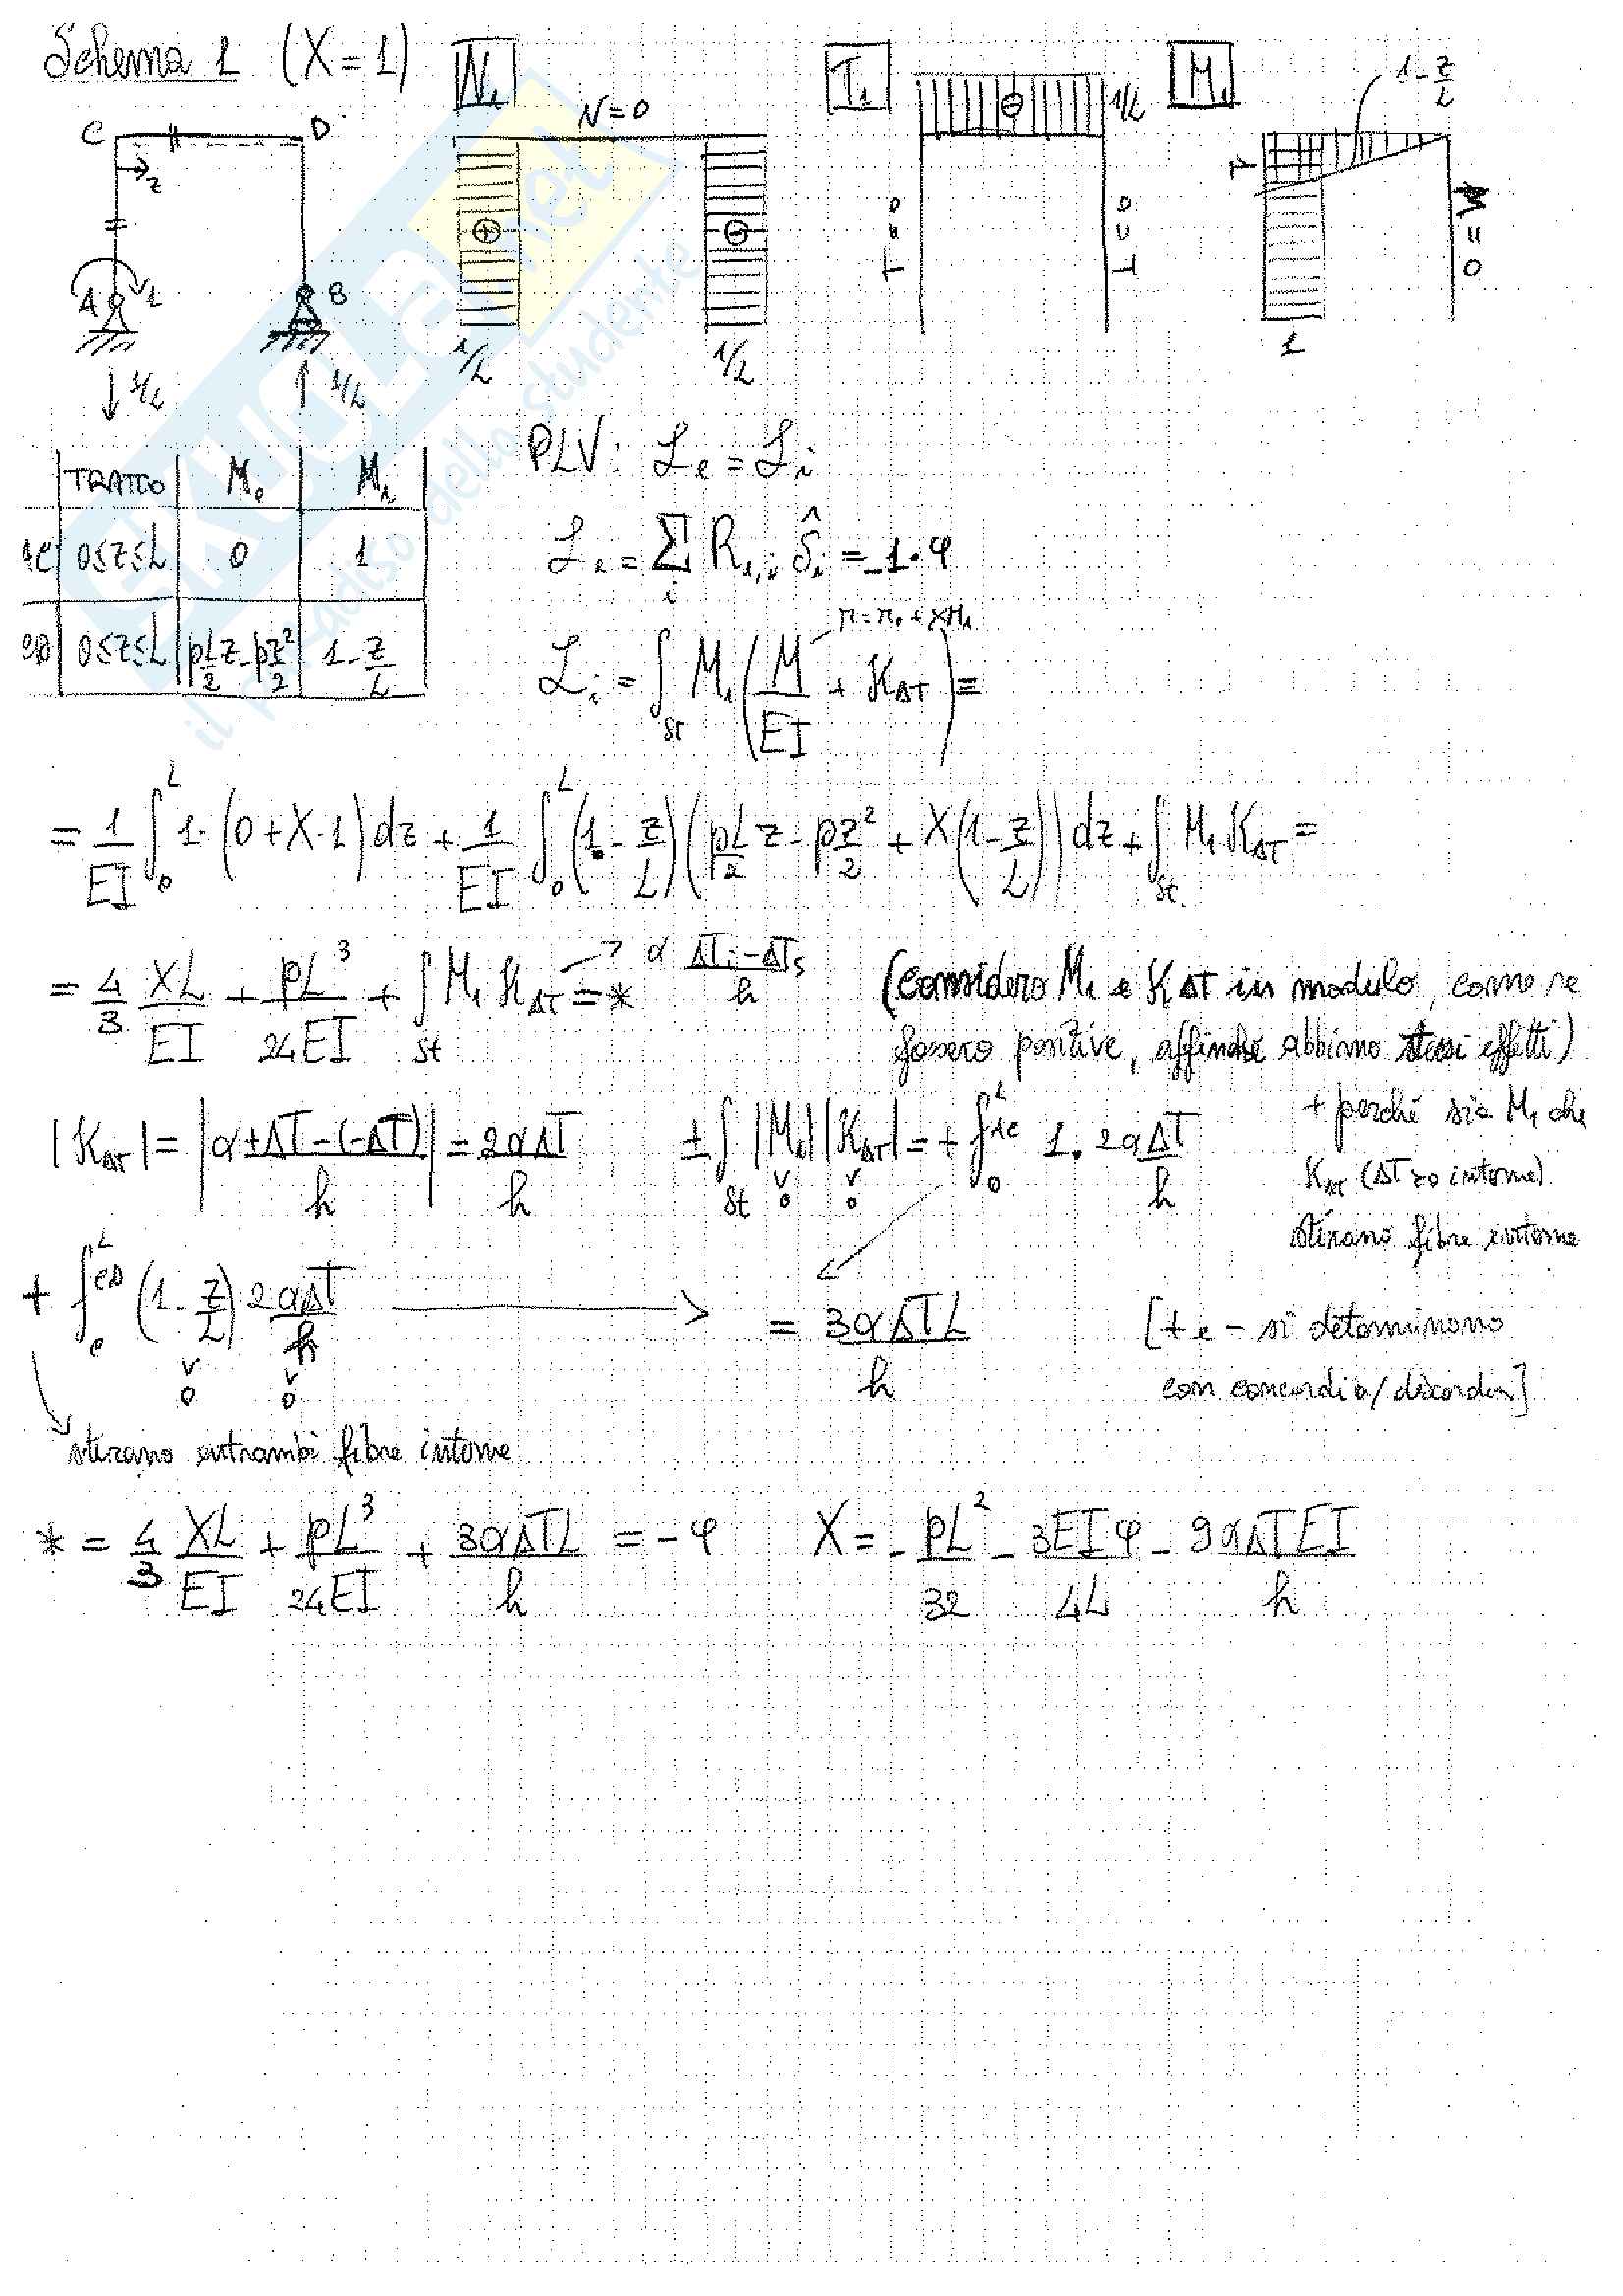 Schema 1 (X=1)
N₁
N=0
T₁
1/L
M₁
1-z/L
C
D
z
A
1
B
1/L
1/L
1/L
1/L
T=0
T=0
1
M=0
1
TRATTO M₀ M₁
AC 0≤z≤L 0 1
CD 0≤z≤L pL/2 z - pz²/2 1-z/L
PLV: Le = Li
Le = Σi R₁,i δ̂i = -1·φ
M=M₀+XM₁
Li = ∫St M₁(M/EI + KΔT) =
= 1/EI ∫₀ᴸ 1·(0+X·1)dz + 1/EI ∫₀ᴸ (1-z/L)(pL/2 z - pz²/2 + X(1-z/L))dz + ∫St M₁KΔT =
= 4/3 XL/EI + pL³/24EI + ∫St M₁ KΔT = * → α ΔTi-ΔTs/h (considero M₁ e KΔT in modulo, come se
fossero positive, affinché abbiano stessi effetti)
|KΔT| = |α +ΔT-(-ΔT)/h| = 2αΔT/h ±∫St |M₁| |KΔT| = + ∫₀ᴸ AC 1·2αΔT/h
+ perché sia M₁ che
KΔT (ΔT>0 interne)
stirano fibre interne
+ ∫₀ᴸ CD (1-z/L) 2αΔT/h → = 3αΔTL/h
[+ e - si determinano
con concordia/discordia]
stirano entrambi fibre interne
* = 4/3 XL/EI + pL³/24EI + 3αΔTL/h = -φ X = -pL²/32 - 3EIφ/4L - 9αΔTEI/h
il paradiso dello studente